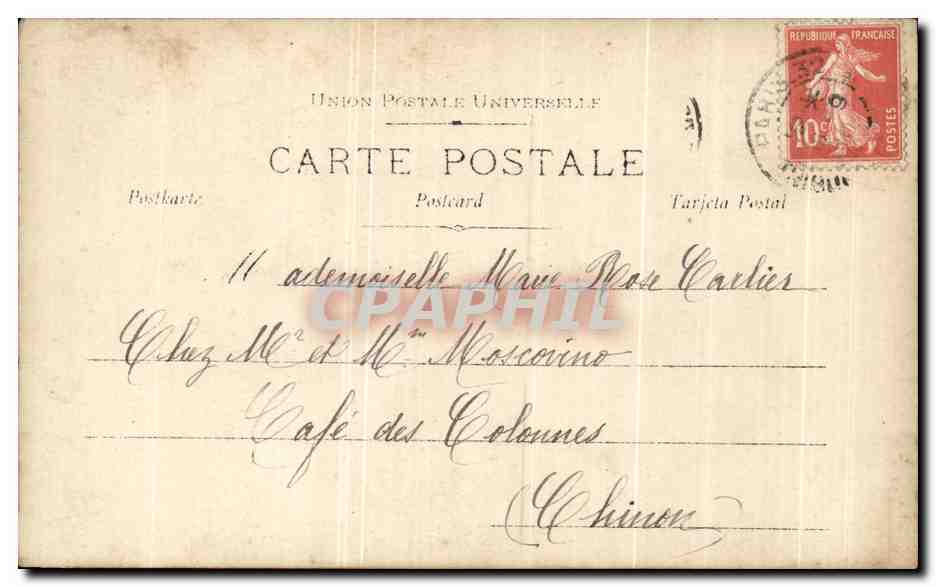 UNION POSTALE UNIVERSELLE
REPUBLIQUE FRANÇAISE
10 c
POSTES
PARIS
CARTE POSTALE
Postkarte Postcard Tarjeta Postal
Mademoiselle Marie Rose Carlier
CPAPHIL
Chez Mr et Mme Moscovino
Café des Colonnes
Chinon